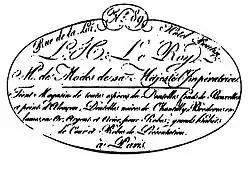 Rue de la Loi, N.º 89, Hôtel
L. H. Le Roy,
M.d de Modes de sa Majesté l'Impératrice
Tient Magasin de toutes espèces de Dentelles, fonds de Bruxelles
et point d'Alençon, Dentelles noires de Chantilly, Broderies en
lames, en Or, Argent et Acier, pour Robes, grands habits
de Cour et Robes de Présentation.
à Paris.